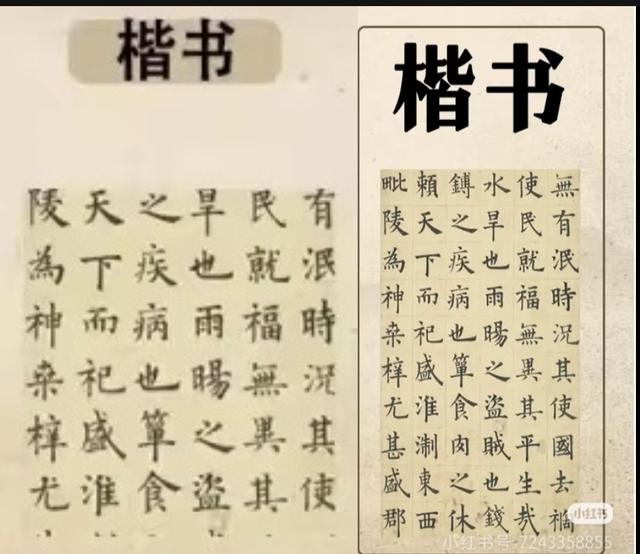 楷书
有泯時況其使
民就福無異其
旱也雨暘之盜
之疾病也簞食
天下而祀盛淮
陵為神桒梓尤
楷书
無有泯時況其使國去禍
使民就福無異其平生哉
水旱也雨暘之盜賊也錢
鎛之疾病也簞食肉之休
賴天下而祀盛淮淛東西
毗陵為神桒梓尤甚盛郡
小红书
小红书号:7243358855